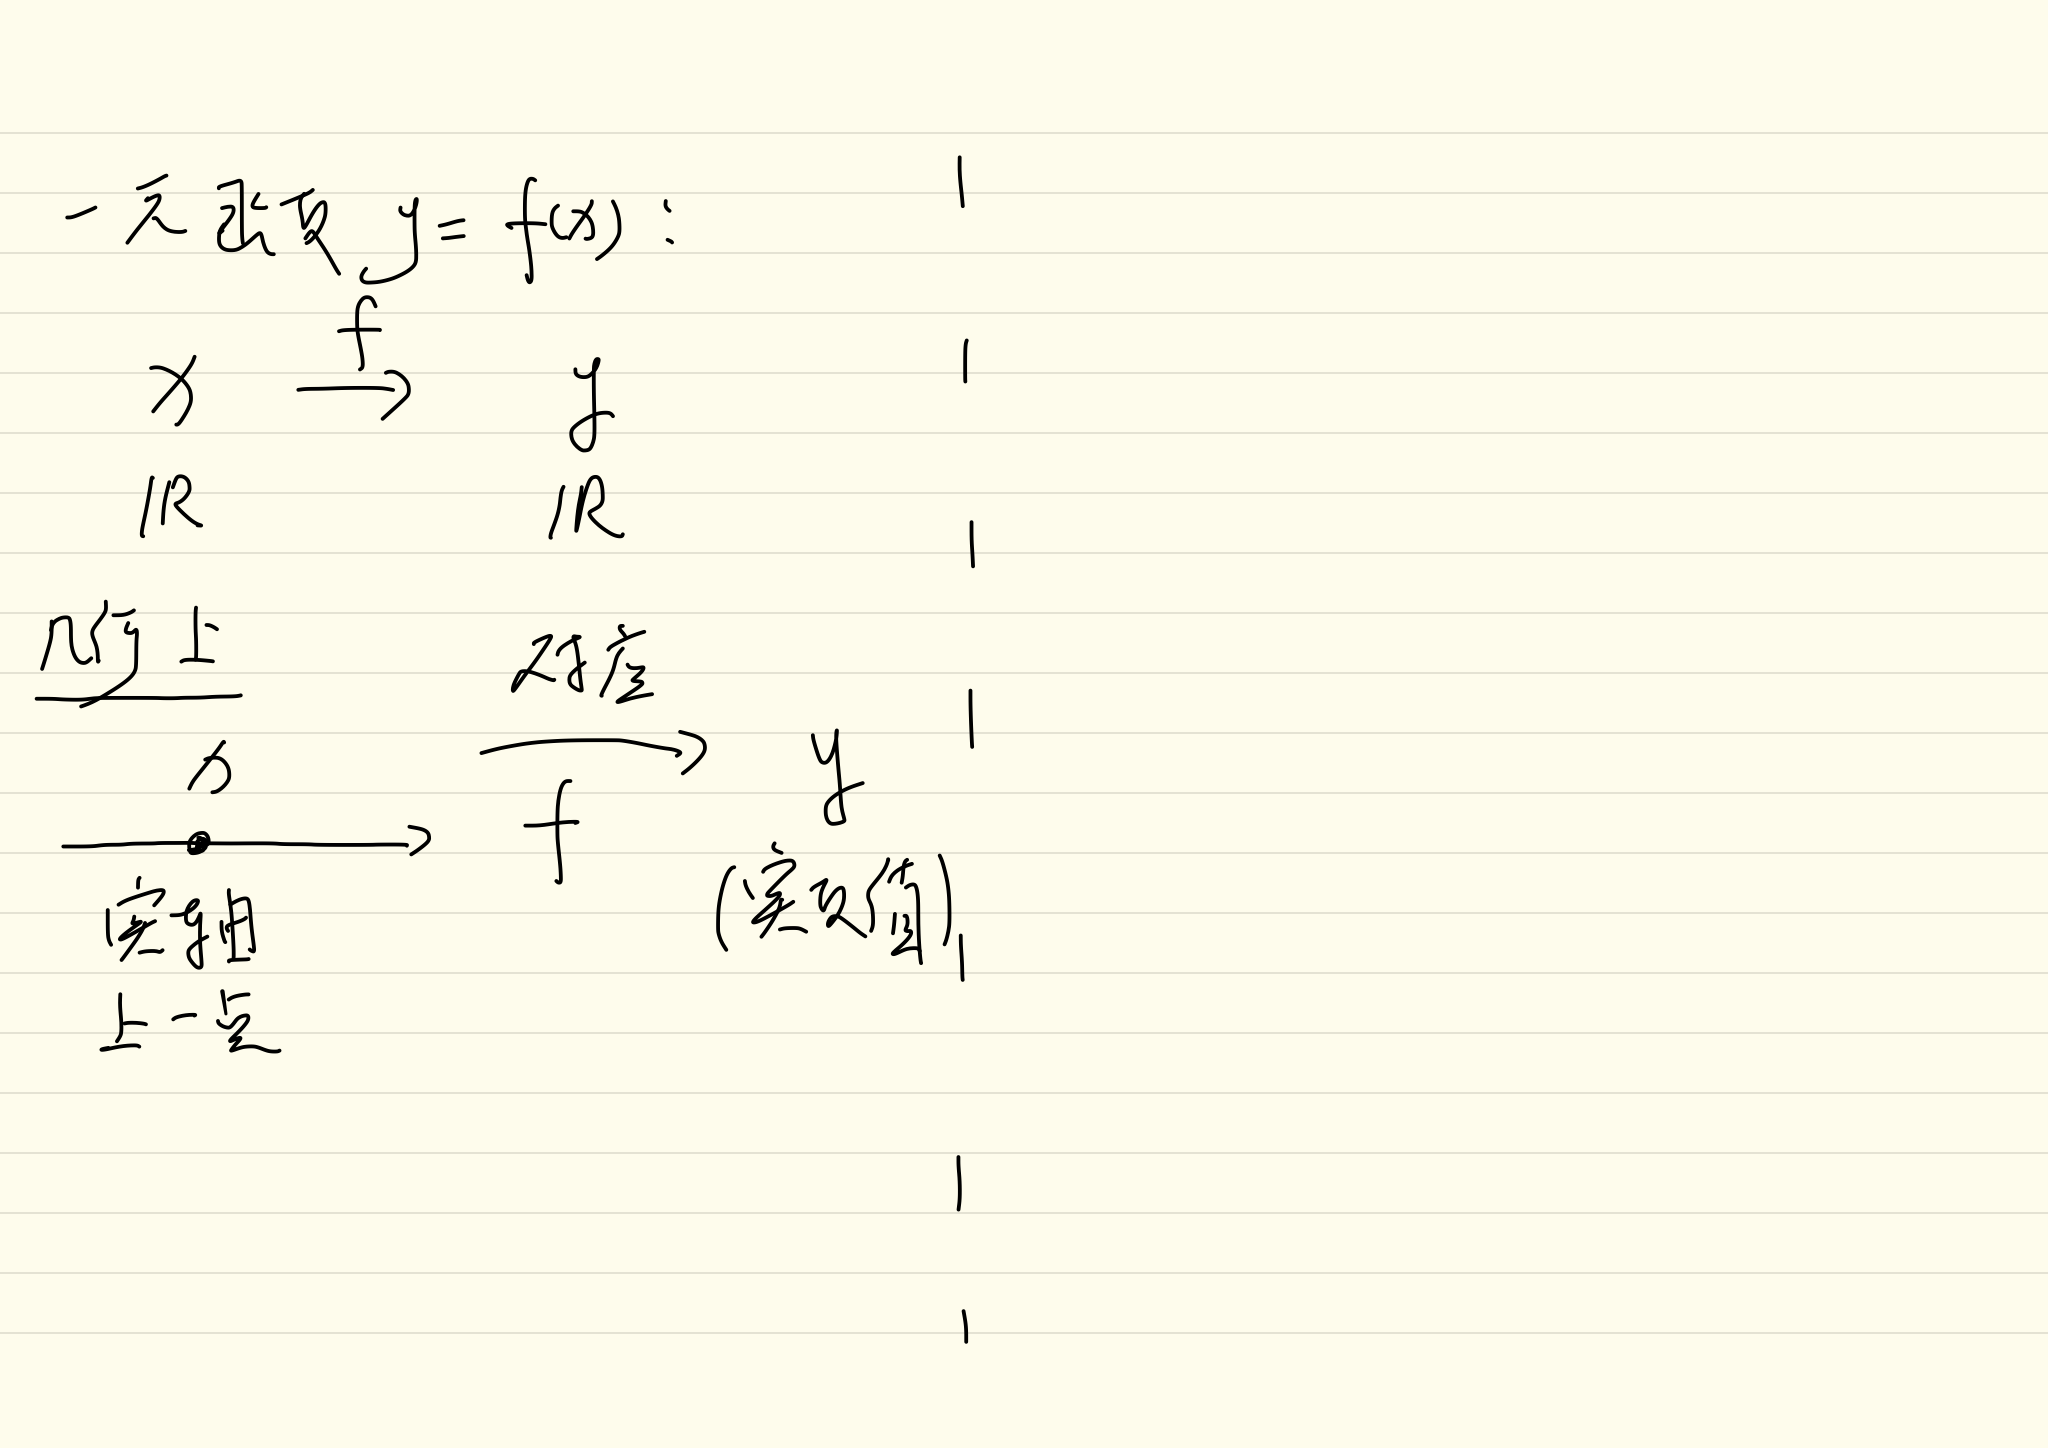 一元函数 y = f(x) :
f
x → y
ℝ ℝ
几何上
对应
x → y
f
(实数值)
实轴
上一点